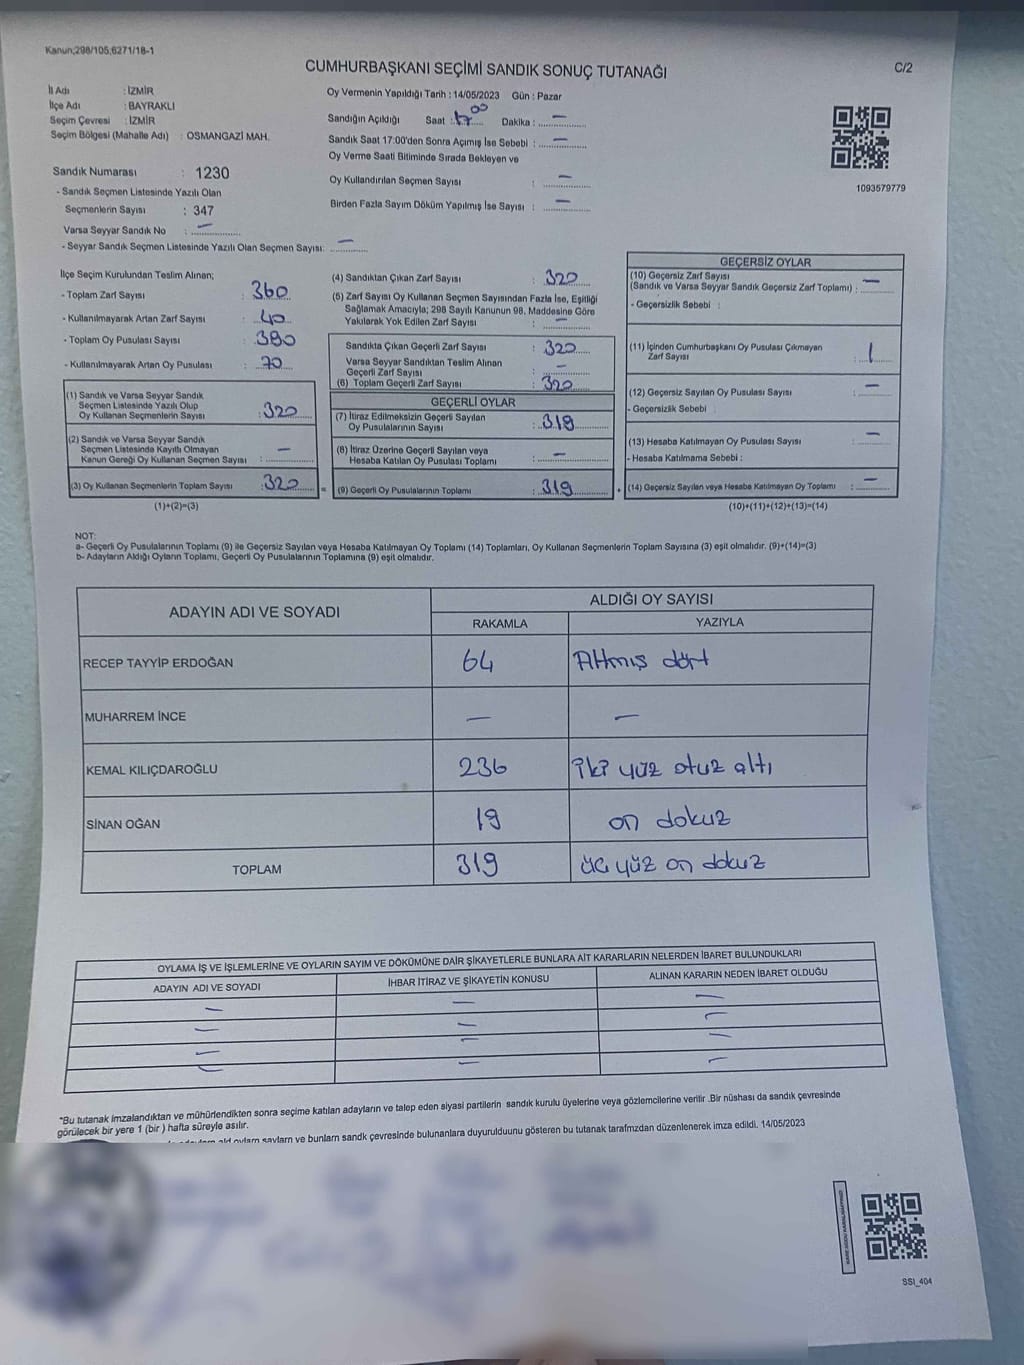 Kanun;298/105;6271/18-1
CUMHURBAŞKANI SEÇİMİ SANDIK SONUÇ TUTANAĞI
C/2
İl Adı : İZMİR
İlçe Adı : BAYRAKLI
Seçim Çevresi : İZMİR
Seçim Bölgesi (Mahalle Adı) : OSMANGAZİ MAH.
Sandık Numarası : 1230
- Sandık Seçmen Listesinde Yazılı Olan
Seçmenlerin Sayısı : 347
Varsa Seyyar Sandık No : —
- Seyyar Sandık Seçmen Listesinde Yazılı Olan Seçmen Sayısı: —
Oy Vermenin Yapıldığı Tarih : 14/05/2023 Gün : Pazar
Sandığın Açıldığı Saat : 17.00 Dakika : —
Sandık Saat 17:00'den Sonra Açımış İse Sebebi : —
Oy Verme Saati Bitiminde Sırada Bekleyen ve
Oy Kullandırılan Seçmen Sayısı : —
Birden Fazla Sayım Döküm Yapılmış İse Sayısı : —
1093579779
İlçe Seçim Kurulundan Teslim Alınan;
- Toplam Zarf Sayısı : 360
- Kullanılmayarak Artan Zarf Sayısı : 40
- Toplam Oy Pusulası Sayısı : 380
- Kullanılmayarak Artan Oy Pusulası : 70
(1) Sandık ve Varsa Seyyar Sandık
Seçmen Listesinde Yazılı Olup
Oy Kullanan Seçmenlerin Sayısı : 320
(2) Sandık ve Varsa Seyyar Sandık
Seçmen Listesinde Kayıtlı Olmayan
Kanun Gereği Oy Kullanan Seçmen Sayısı : —
(3) Oy Kullanan Seçmenlerin Toplam Sayısı : 320
(1)+(2)=(3)
(4) Sandıktan Çıkan Zarf Sayısı : 320
(5) Zarf Sayısı Oy Kullanan Seçmen Sayısından Fazla İse, Eşitliği
Sağlamak Amacıyla; 298 Sayılı Kanunun 98. Maddesine Göre
Yakılarak Yok Edilen Zarf Sayısı : —
Sandıkta Çıkan Geçerli Zarf Sayısı : 320
Varsa Seyyar Sandıktan Teslim Alınan
Geçerli Zarf Sayısı : —
(6) Toplam Geçerli Zarf Sayısı : 320
GEÇERLİ OYLAR
(7) İtiraz Edilmeksizin Geçerli Sayılan
Oy Pusulalarının Sayısı : 319
(8) İtiraz Üzerine Geçerli Sayılan veya
Hesaba Katılan Oy Pusulası Toplamı : —
= (9) Geçerli Oy Pusulalarının Toplamı : 319
GEÇERSİZ OYLAR
(10) Geçersiz Zarf Sayısı
(Sandık ve Varsa Seyyar Sandık Geçersiz Zarf Toplamı) : —
- Geçersizlik Sebebi :
(11) İçinden Cumhurbaşkanı Oy Pusulası Çıkmayan
Zarf Sayısı : 1
(12) Geçersiz Sayılan Oy Pusulası Sayısı : —
- Geçersizlik Sebebi :
(13) Hesaba Katılmayan Oy Pusulası Sayısı : —
- Hesaba Katılmama Sebebi :
+ (14) Geçersiz Sayılan veya Hesaba Katılmayan Oy Toplamı : —
(10)+(11)+(12)+(13)=(14)
NOT:
a- Geçerli Oy Pusulalarının Toplamı (9) ile Geçersiz Sayılan veya Hesaba Katılmayan Oy Toplamı (14) Toplamları, Oy Kullanan Seçmenlerin Toplam Sayısına (3) eşit olmalıdır. (9)+(14)=(3)
b- Adayların Aldığı Oyların Toplamı, Geçerli Oy Pusulalarının Toplamına (9) eşit olmalıdır.
ADAYIN ADI VE SOYADI
ALDIĞI OY SAYISI
RAKAMLA YAZIYLA
RECEP TAYYİP ERDOĞAN 64 Altmış dört
MUHARREM İNCE — —
KEMAL KILIÇDAROĞLU 236 iki yüz otuz altı
SİNAN OĞAN 19 on dokuz
TOPLAM 319 üç yüz on dokuz
OYLAMA İŞ VE İŞLEMLERİNE VE OYLARIN SAYIM VE DÖKÜMÜNE DAİR ŞİKAYETLERLE BUNLARA AİT KARARLARIN NELERDEN İBARET BULUNDUKLARI
ADAYIN ADI VE SOYADI İHBAR İTİRAZ VE ŞİKAYETİN KONUSU ALINAN KARARIN NEDEN İBARET OLDUĞU
— — —
— — —
— — —
— — —
*Bu tutanak imzalandıktan ve mühürlendikten sonra seçime katılan adayların ve talep eden siyasi partilerin sandık kurulu üyelerine veya gözlemcilerine verilir .Bir nüshası da sandık çevresinde
görülecek bir yere 1 (bir ) hafta süreyle asılır.
ve bunların sandk çevresinde bulunanlara duyurulduunu gösteren bu tutanak tarafmzdan düzenlenerek imza edildi. 14/05/2023
SSI_404